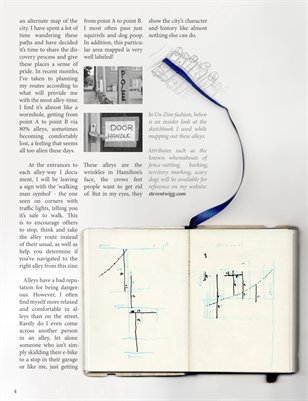 an alternate map of the
city. I have spent a lot of
time wandering these
paths and have decided
it's time to share the dis-
covery process and give
these places a sense of
pride. In recent months,
I've taken to planning
my routes according to
what will provide me
with the most alley-time.
I find it's almost like a
wormhole, getting from
point A to point B via
80% alleys, sometimes
becoming comfortably
lost, a feeling that seems
all too alien these days.
At the entrances to
each alley-way I docu-
ment, I will be leaving
a sign with the 'walking
man symbol' - the one
seen on corners with
traffic lights, telling you
it's safe to walk. This
is to encourage others
to stop, think and take
the alley route instead
of their usual, as well as
help you determine if
you've navigated to the
right alley from this zine.
Alleys have a bad repu-
tation for being danger-
ous. However, I often
find myself more relaxed
and comfortable in al-
leys than on the street.
Rarely do I even come
across another person
in an alley, let alone
someone who isn't sim-
ply skidding their e-bike
to a stop in their garage
or like me, just getting
from point A to point B.
I most often pass just
squirrels and dog poop.
In addition, this particu-
lar area mapped is very
well labeled!
POLE
DOOR
HANDLE
These alleys are the
wrinkles in Hamilton's
face, the crows feet
people want to get rid
of. But in my eyes, they
show the city's character
and history like almost
nothing else can do.
In Un-Zine fashion, below
is an insider look at the
sketchbook I used while
mapping out these alleys.
Attributes such as the
known whereabouts of
fence-rattling, barking,
territory marking, scary
dogs will be available for
reference on my website:
steventwigg.com
4